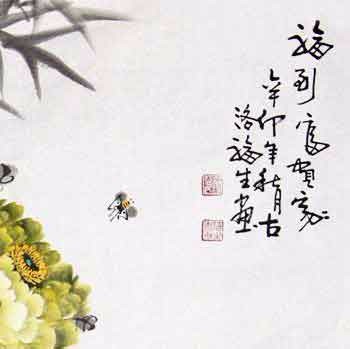 福到富贵家
辛卯年秋月古
洛福生画